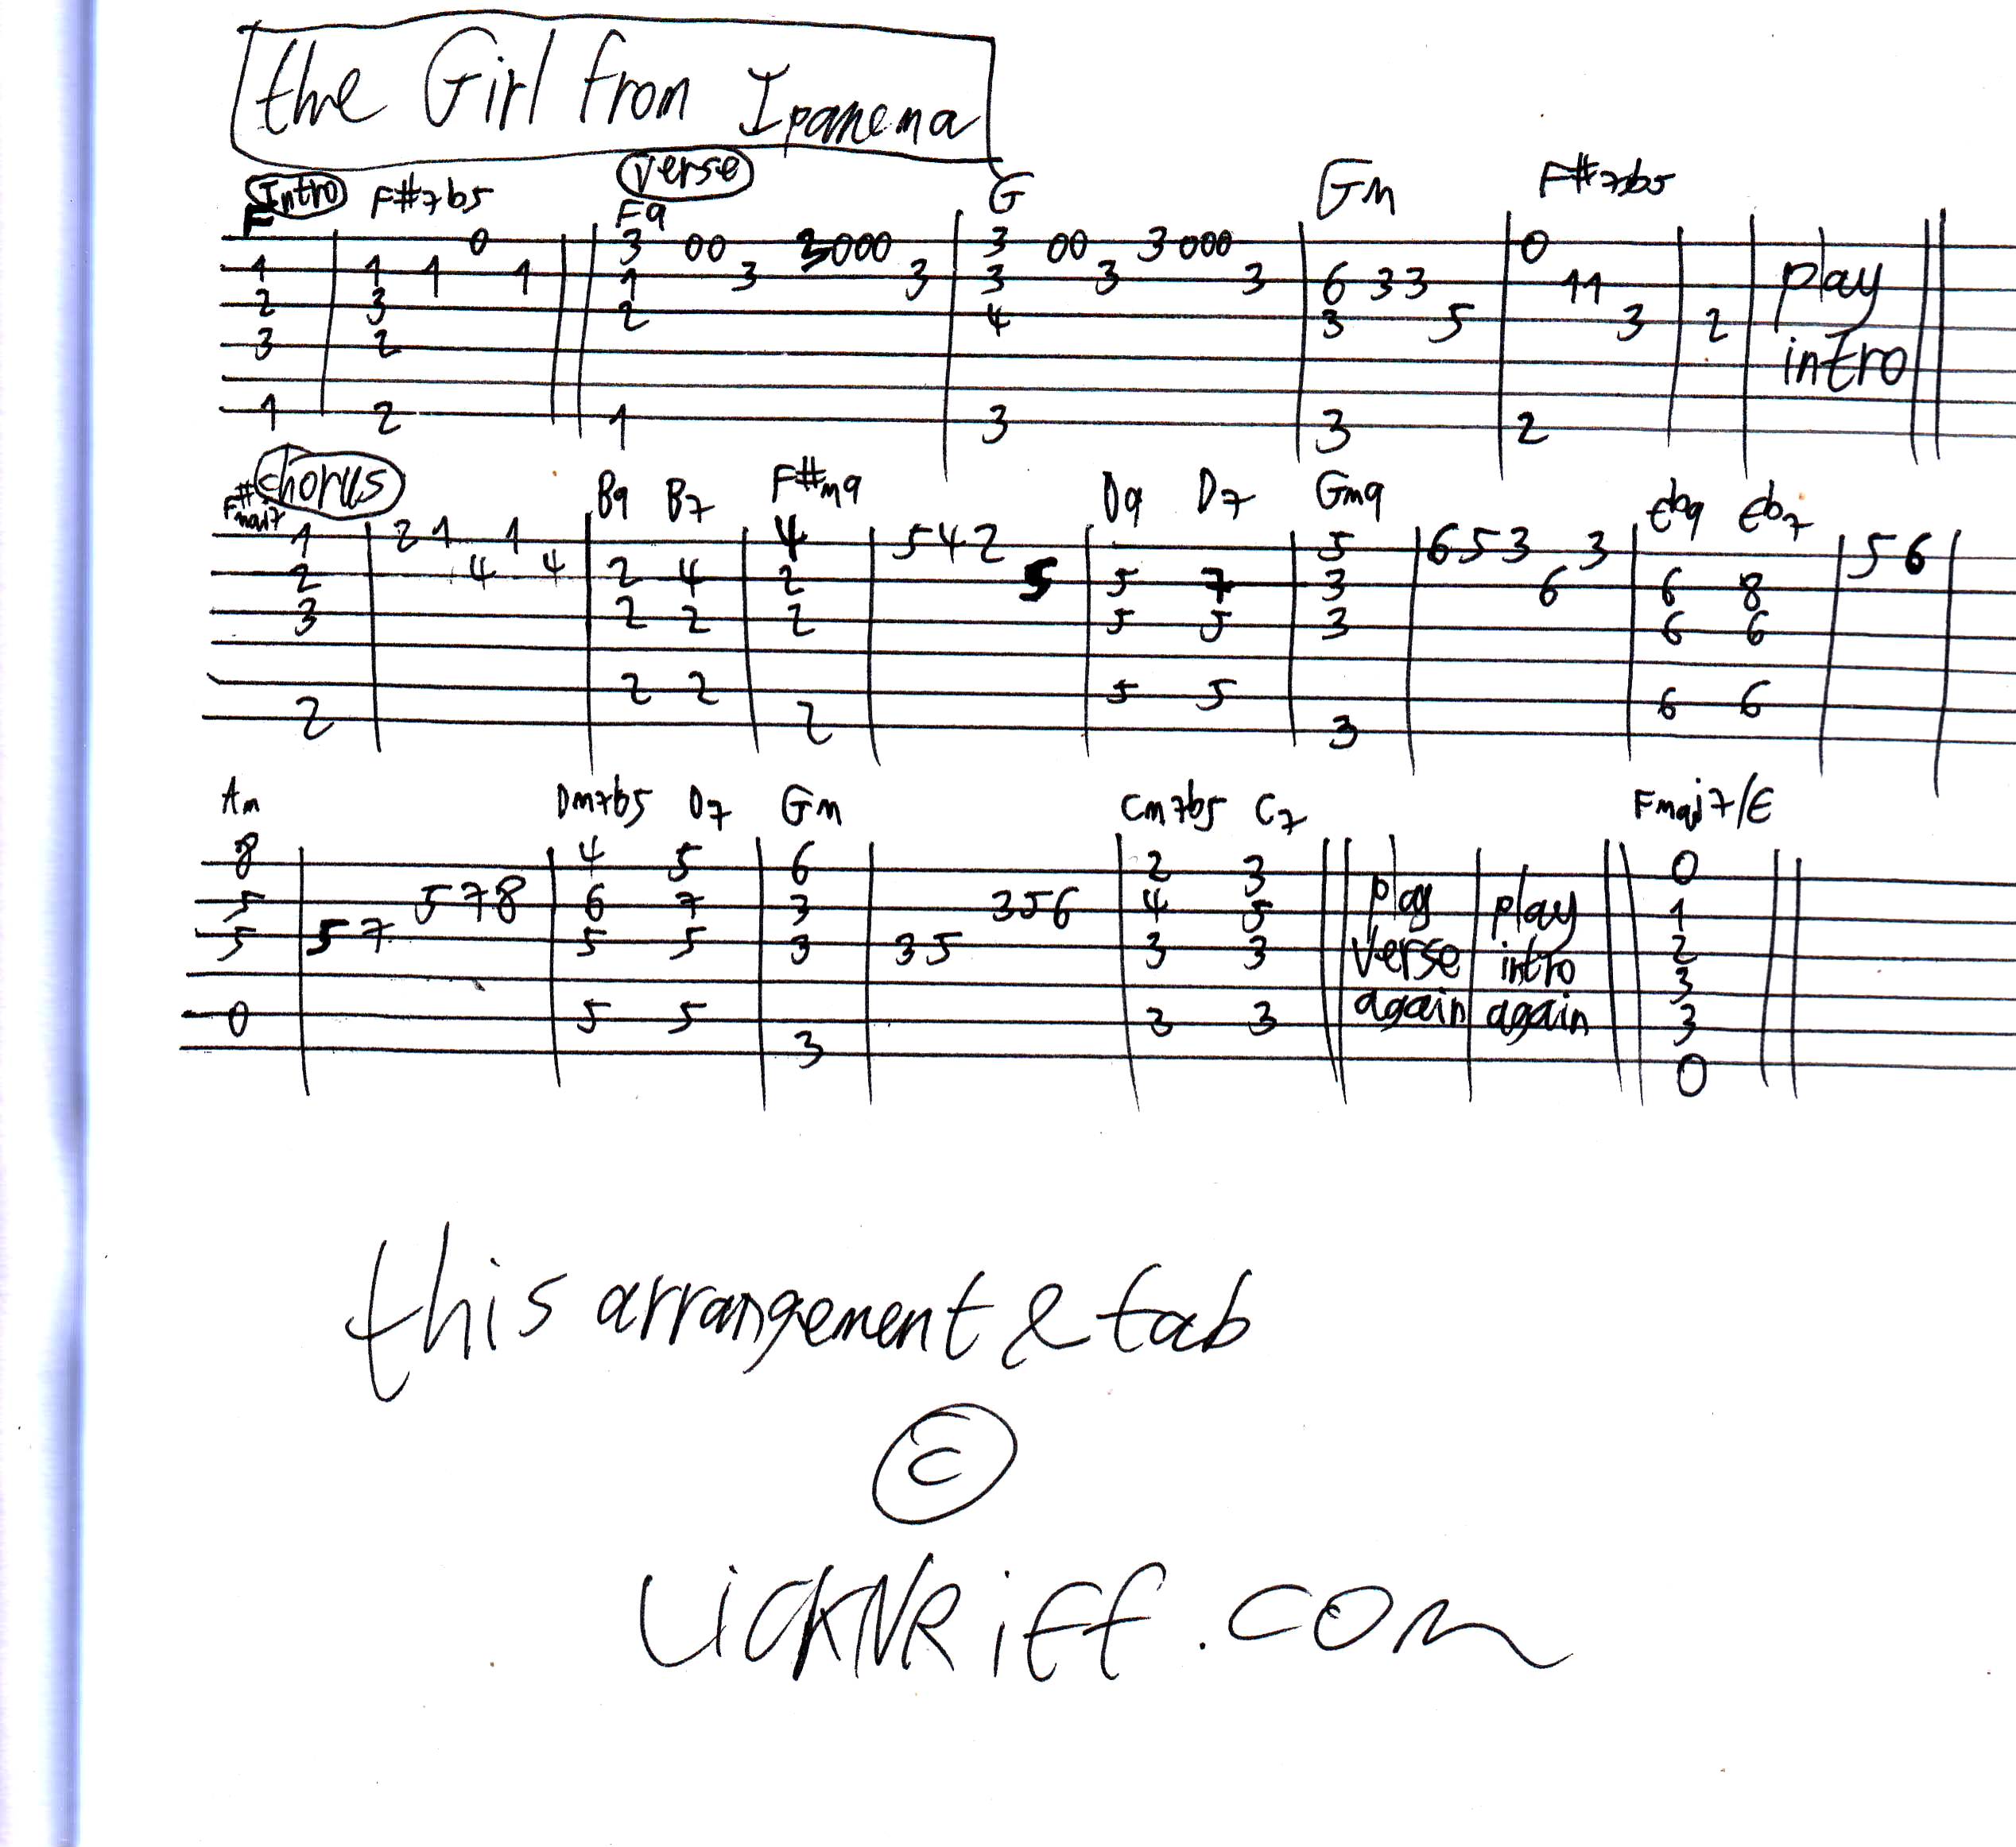 the Girl from Ipanema
Intro Verse
F F#7b5 F9 G Gm F#7b5
0 3 00 3000 3 00 3 000 0
1 1 1 1 1 3 3 3 3 3 6 33 11 play
2 3 2 4 3 5 3 2
3 2 intro
1 2 1 3 3 2
Chorus
F#maj7 B9 B7 F#m9 D9 D7 Gm9 Eb9 Eb7
1 2 1 1 4 5 4 2 5 6 5 3 3 5 6
2 4 4 2 4 2 5 5 7 3 6 6 8
3 2 2 2 5 5 3 6 6
2 2 5 5 6 6
2 2 3
Am Dm7b5 D7 Gm Cm7b5 C7 Fmaj7/E
8 4 5 6 2 3 0
5 5 7 8 6 7 3 3 5 6 4 5 play play 1
5 5 7 5 5 3 3 5 3 3 verse intro 2
3
0 5 5 3 3 again again 3
3 0
this arrangement & tab
©
LickNRiff.com